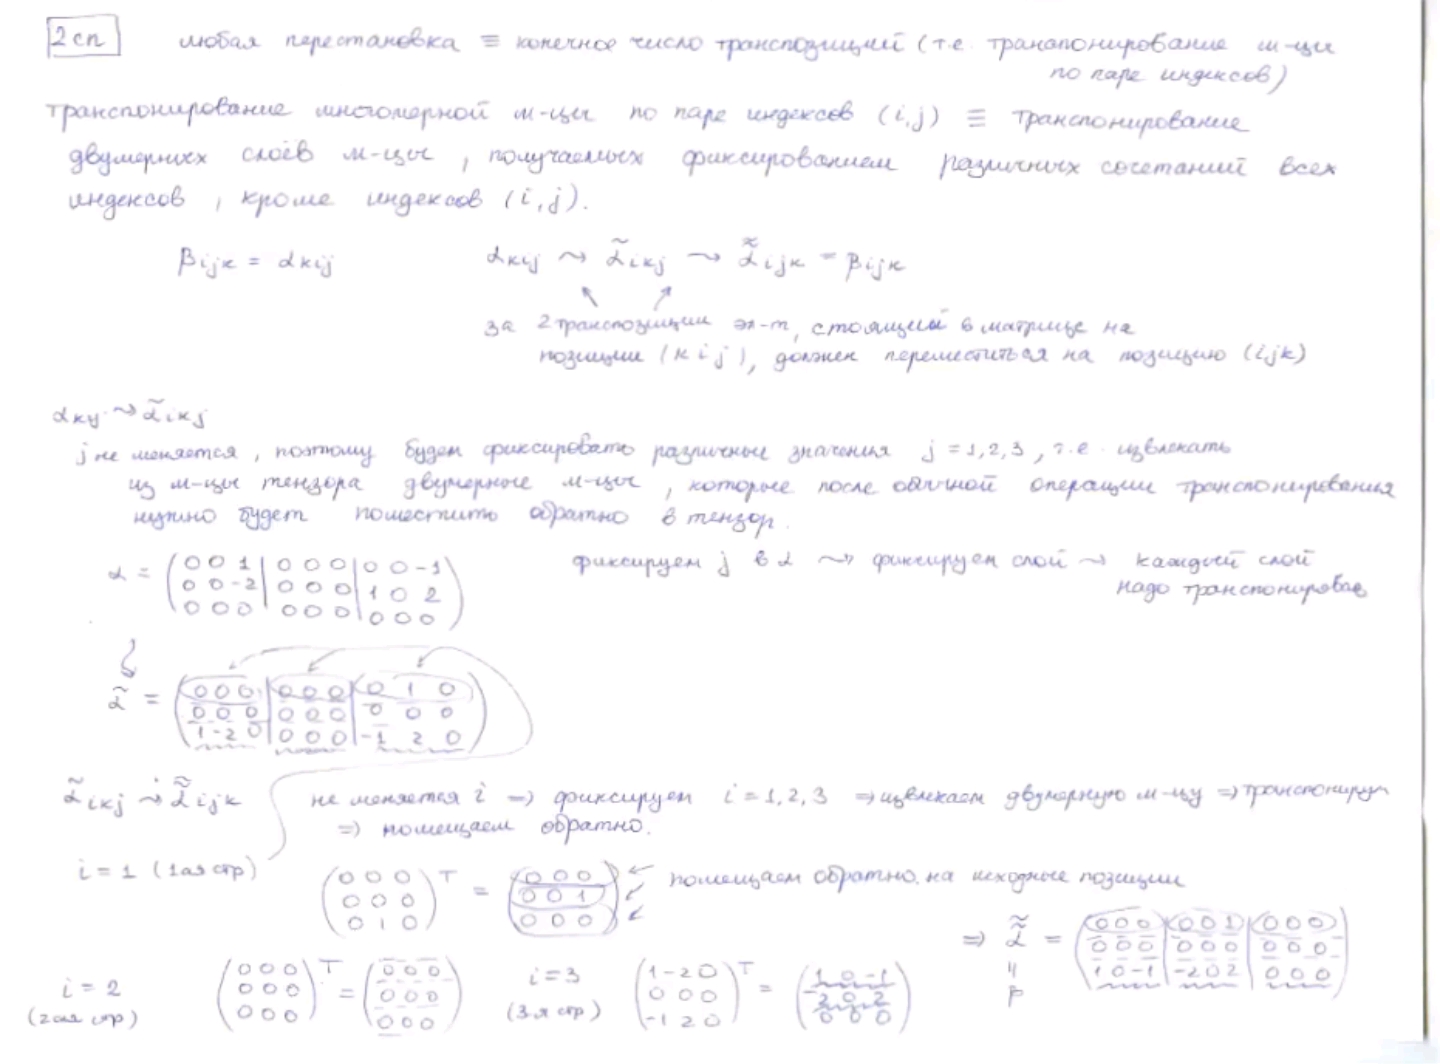 2 сп любая перестановка ≡ конечное число транспозиций (т.е. транспонирование м-цы
по паре индексов)
транспонирование многомерной м-цы по паре индексов (i,j) ≡ транспонирование
двумерных слоёв м-цы, получаемых фиксированием различных сочетаний всех
индексов, кроме индексов (i,j).
βijk = αkij αkij ⤳ α̃ikj ⤳ α̃̃ijk = βijk
за 2 транспозиции эл-т, стоящий в матрице на
позиции (k i j), должен переместиться на позицию (ijk)
αkij ⤳ α̃ikj
j не меняется, поэтому будем фиксировать различные значения j = 1,2,3, т.е. извлекать
из м-цы тензора двумерные м-цы, которые после обычной операции транспонирования
нужно будет поместить обратно в тензор.
α = (0 0 1 | 0 0 0 | 0 0 -1 фиксируем j в α ⤳ фиксируем слой → каждый слой
0 0 -2 | 0 0 0 | 1 0 2 надо транспонировать
0 0 0 | 0 0 0 | 0 0 0)
α̃ = (0 0 0 | 0 0 0 | 0 1 0
0 0 0 | 0 0 0 | 0 0 0
1 -2 0 | 0 0 0 | -1 2 0)
α̃ikj ⤳ α̃̃ijk не меняется i => фиксируем i = 1,2,3 => извлекаем двумерную м-цу => транспонируем
=> помещаем обратно.
i = 1 (1ая стр) (0 0 0 0 0 0 0 1 0)ᵀ = (0 0 0 0 0 1 0 0 0) помещаем обратно на исходные позиции
=> α̃̃ = (0 0 0 | 0 0 1 | 0 0 0
0 0 0 | 0 0 0 | 0 0 0
1 0 -1 | -2 0 2 | 0 0 0)
β
i = 2 (2ая стр) (0 0 0 0 0 0 0 0 0)ᵀ = (0 0 0 0 0 0 0 0 0) i = 3 (3-я стр) (1 -2 0 0 0 0 -1 2 0)ᵀ = (1 0 -1 -2 0 2 0 0 0)